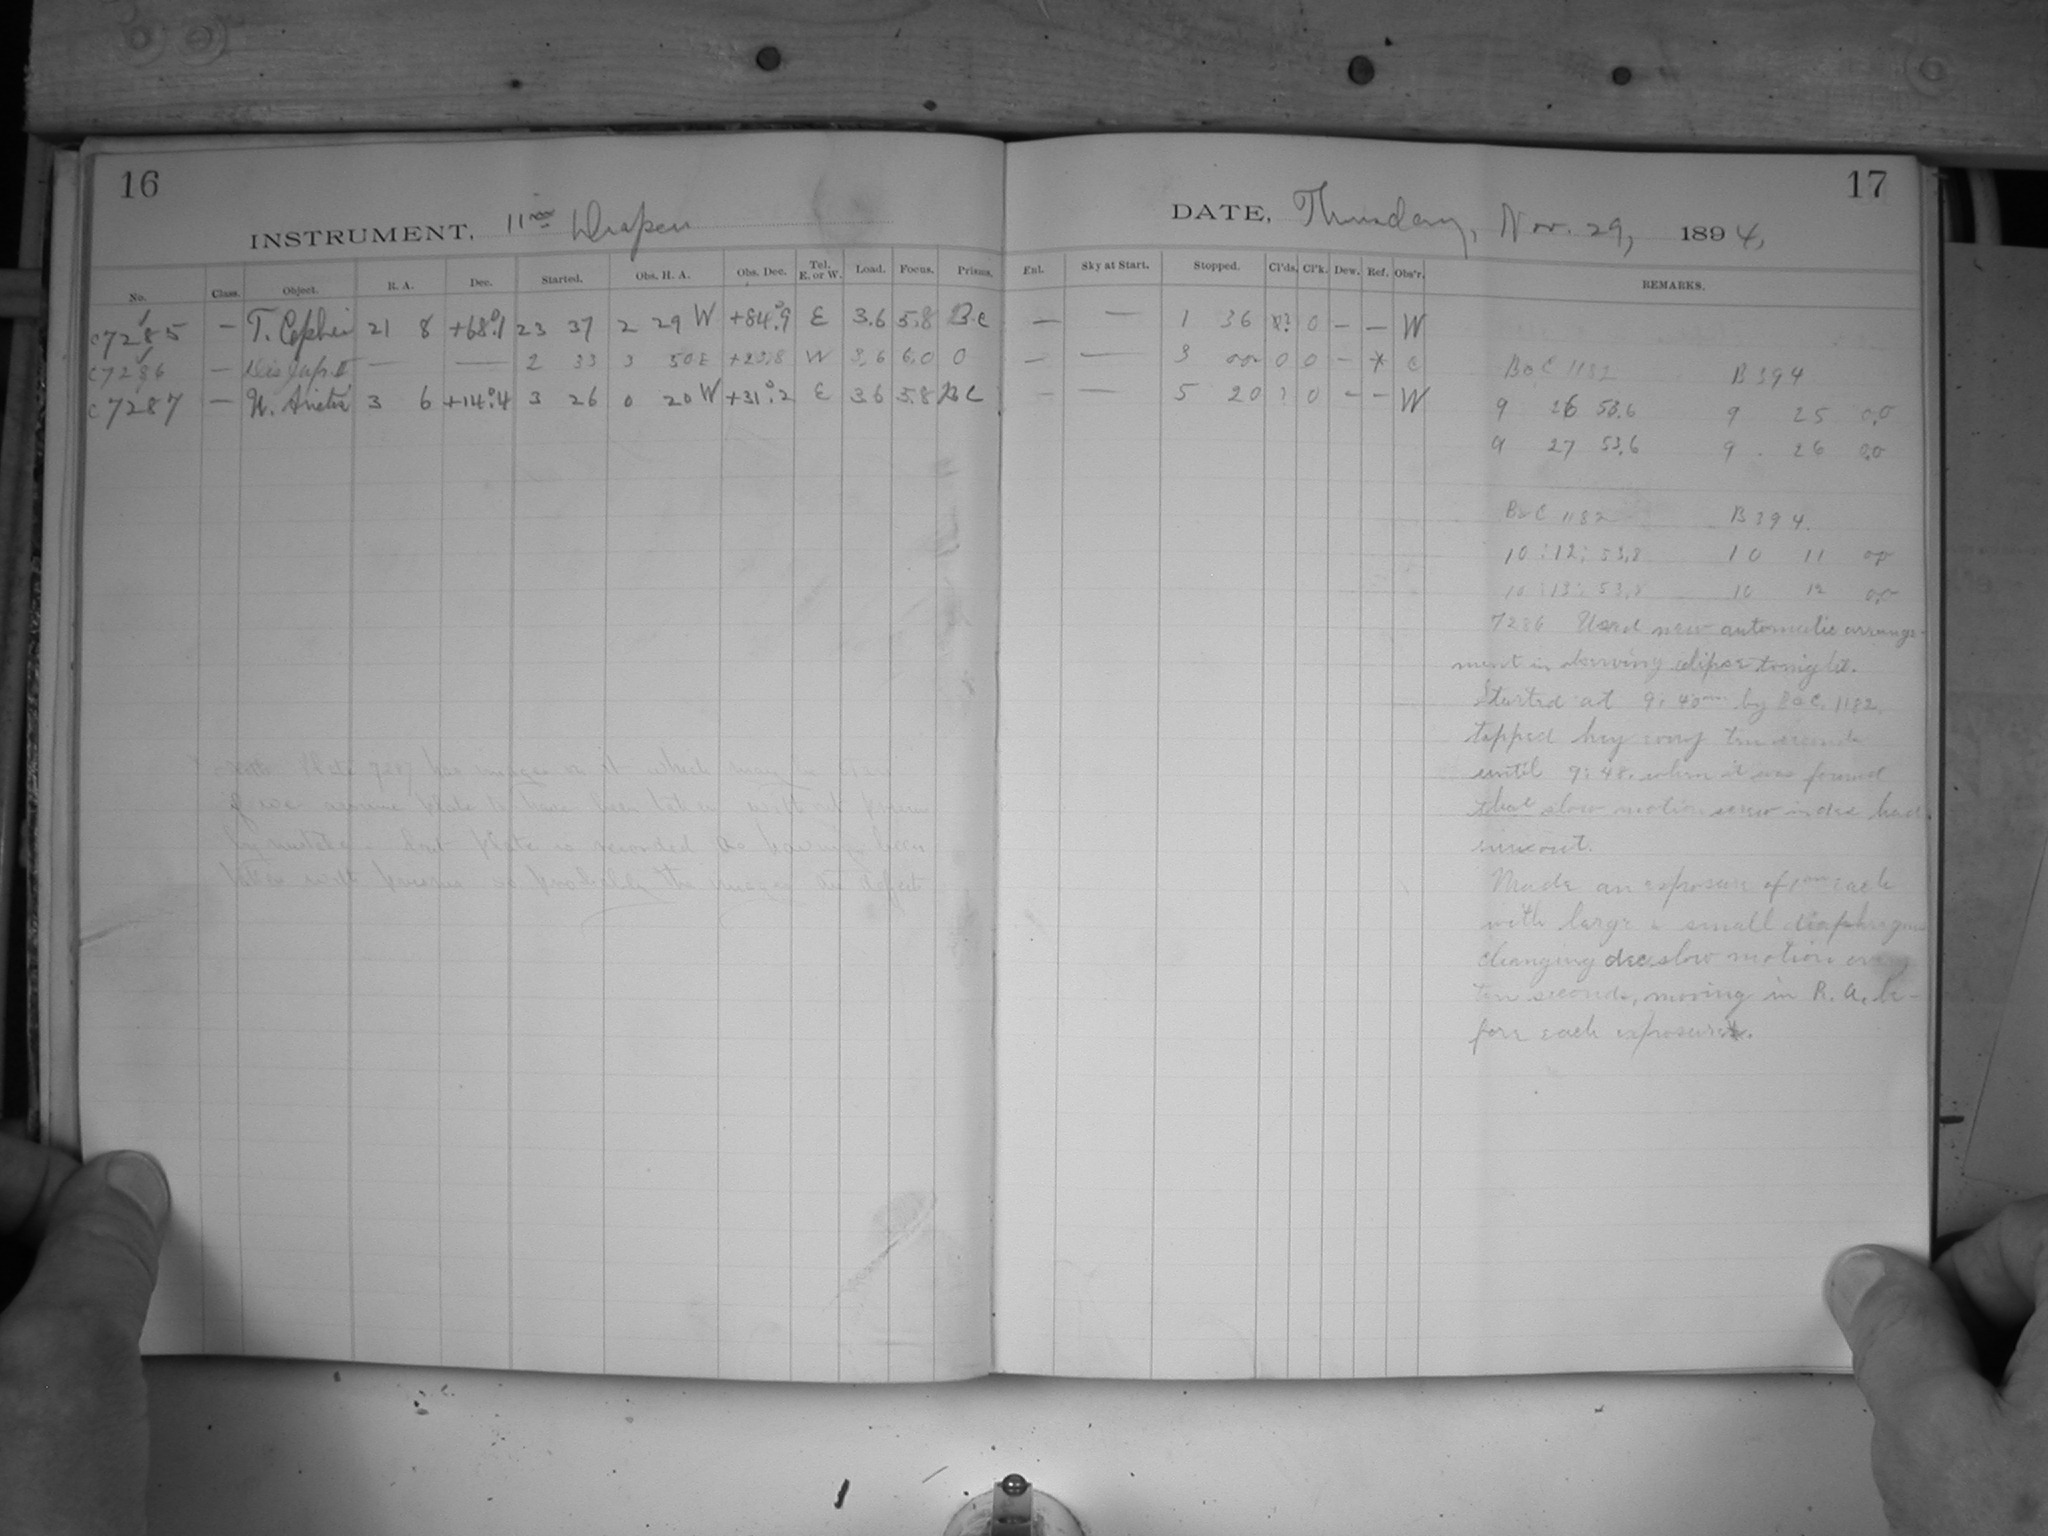 16
INSTRUMENT, 11 in Draper
No. Class. Object. R. A. Dec. Started. Obs. H. A. Obs. Dec. Tel. E. or W. Load. Focus. Prisms.
c7285 — T. Cephei 21 8 +68°.1 23 37 2 29 W +84°.9 E 3.6 5.8 B.C
c7286 — Ecl. Jup. II — — 2 33 3 50 E +23.8 W 3.6 6.0 0
c7287 — U. Arietis 3 6 +14°.4 3 26 0 20 W +31°.2 E 3.6 5.8 B C
Note Plate 7287 has images on it which may be
if we assume plate to have been taken without prisms
by mistake. But plate is recorded as having been
taken with prisms so probably the images are defects
17
DATE, Thursday, Nov. 29, 1894,
Enl. Sky at Start. Stopped. Cl'ds. Cl'k. Dew. Ref. Obs'r. REMARKS.
— — 1 36 ? 0 — — W
— — 3 00 0 0 — * C
— — 5 20 ? 0 — — W
B&C 1182 B 394
9 26 53.6 9 25 0.0
9 27 53.6 9 26 0.0
B&C 1182 B 394.
10:12:53.8 10 11 00
10:13:53.8 10 12 0.0
7286 Used new automatic arrange-
ment in observing eclipse tonight.
Started at 9:40 by B&C. 1182
tapped key every ten seconds
until 9:48. when it was found
that slow motion screw in dec had
run out.
Made an exposure of 1m each
with large & small diaphragms
changing dec. slow motion every
ten seconds, moving in R. A. be-
fore each exposure.